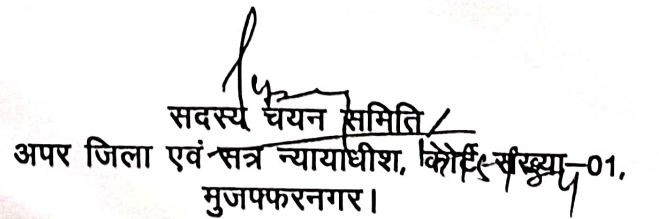 सदस्य चयन समिति/
अपर जिला एवं सत्र न्यायाधीश, कोर्ट संख्या-01,
मुजफ्फरनगर।